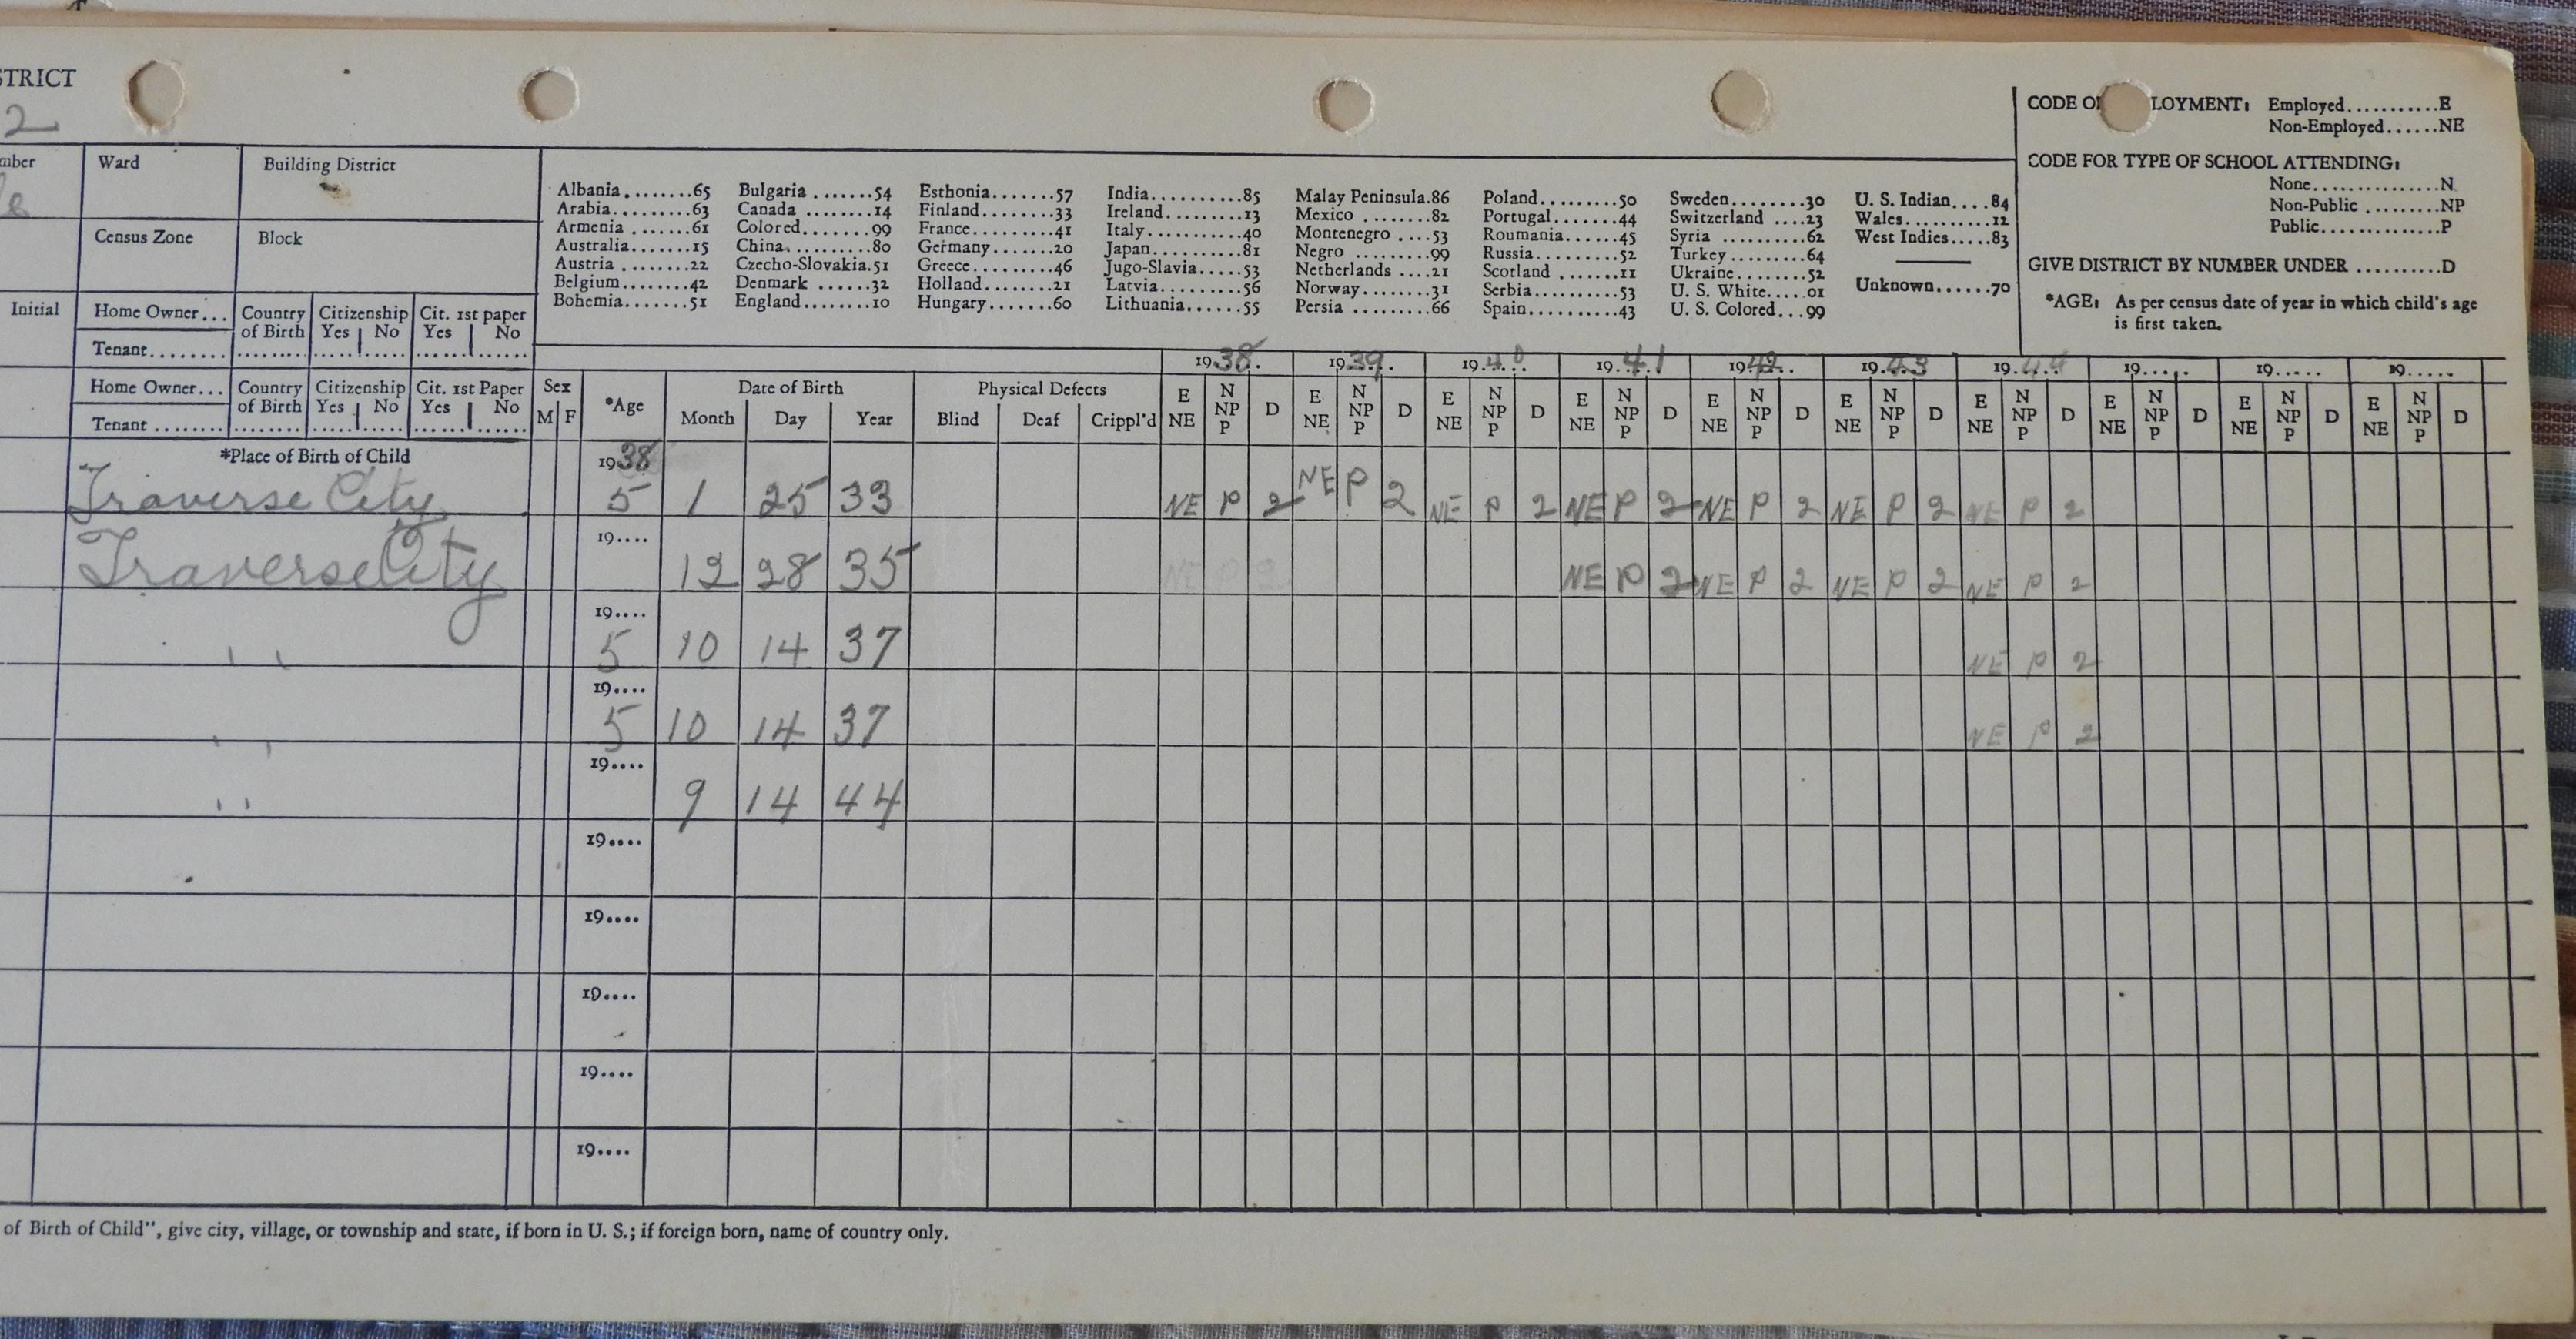 STRICT
2
CODE O LOYMENT: Employed...........E
Non-Employed......NE
CODE FOR TYPE OF SCHOOL ATTENDING:
None...............N
Non-Public .........NP
Public..............P
GIVE DISTRICT BY NUMBER UNDER ..........D
*AGE: As per census date of year in which child's age
is first taken.
mber Ward Building District
Census Zone Block
Albania ........65 Bulgaria .......54 Esthonia.......57 India...........85 Malay Peninsula.86 Poland.........50 Sweden........30 U. S. Indian....84
Arabia.........63 Canada ........14 Finland........33 Ireland.........13 Mexico ........82 Portugal.......44 Switzerland ....23 Wales..........12
Armenia .......61 Colored........99 France.........41 Italy...........40 Montenegro ....53 Roumania......45 Syria ..........62 West Indies.....83
Australia.......15 China..........80 Germany.......20 Japan..........81 Negro .........99 Russia.........52 Turkey.........64
Austria ........22 Czecho-Slovakia.51 Greece.........46 Jugo-Slavia.....53 Netherlands ....21 Scotland .......11 Ukraine........52 Unknown......70
Belgium........42 Denmark .......32 Holland........21 Latvia..........56 Norway........31 Serbia..........53 U. S. White.....01
Bohemia.......51 England........10 Hungary.......60 Lithuania.......55 Persia .........66 Spain..........43 U. S. Colored...99
Initial Home Owner... Country of Birth Citizenship Yes No Cit. 1st paper Yes No
Tenant........
1938. 1939. 1940 1941 1942. 1943 1944 19...... 19...... 19......
Home Owner... Country of Birth Citizenship Yes No Cit. 1st Paper Yes No Sex *Age Date of Birth Physical Defects
Tenant ........ M F Month Day Year Blind Deaf Crippl'd E NE N NP P D E NE N NP P D E NE N NP P D E NE N NP P D E NE N NP P D E NE N NP P D E NE N NP P D E NE N NP P D E NE N NP P D E NE N NP P D
*Place of Birth of Child 1938
Traverse City 5 1 25 33 NE P 2 NE P 2 NE P 2 NE P 2 NE P 2 NE P 2 NE P 2
19....
Traverse City 12 28 35 NE P 2 NE P 2 NE P 2 NE P 2 NE P 2
19....
" 5 10 14 37 NE P 2
19....
" 5 10 14 37 NE P 2
19....
" 9 14 44
19....
19....
19....
19....
19....
of Birth of Child", give city, village, or township and state, if born in U. S.; if foreign born, name of country only.